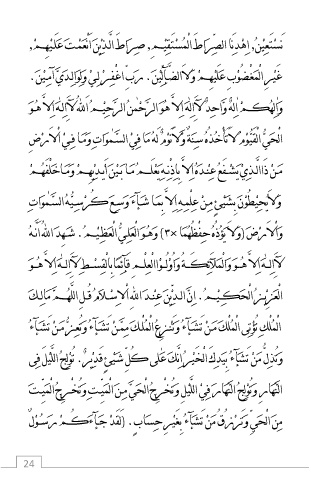 نَسْتَعِيْنُ، اِهْدِنَا الصِّرَاطَ الْمُسْتَقِيْمَ، صِرَاطَ الَّذِيْنَ اَنْعَمْتَ عَلَيْهِمْ،
غَيْرِ الْمَغْضُوْبِ عَلَيْهِمْ وَلَا الضَّآلِّيْنَ. رَبِّ اغْفِرْ لِيْ وَلِوَالِدَيَّ آمِيْنَ.
وَاِلٰهُكُمْ اِلٰهٌ وَاحِدٌ لَا اِلٰهَ اِلَّا هُوَ الرَّحْمٰنُ الرَّحِيْمُ اَللهُ لَا اِلٰهَ اِلَّا هُوَ
الْحَيُّ الْقَيُّوْمُ لَا تَأْخُذُهُ سِنَةٌ وَلَا نَوْمٌ لَهُ مَا فِيْ السَّمٰوَاتِ وَمَا فِيْ الْاَرْضِ
مَنْ ذَا الَّذِيْ يَشْفَعُ عِنْدَهُ اِلَّا بِاِذْنِهِ يَعْلَمُ مَا بَيْنَ اَيْدِيْهِمْ وَمَا خَلْفَهُمْ
وَلَا يُحِيْطُوْنَ بِشَيْئٍ مِنْ عِلْمِهِ اِلَّا بِمَا شَآءَ وَسِعَ كُرْسِيُّهُ السَّمٰوَاتِ
وَالْاَرْضَ (وَلَا يَؤُدُهُ حِفْظُهُمَا ×٣) وَهُوَ الْعَلِيُّ الْعَظِيْمُ. شَهِدَ اللهُ اَنَّهُ
لَا اِلٰهَ اِلَّا هُوَ وَالْمَلَآئِكَةُ وَاُولُوْا الْعِلْمِ قَآئِمًا بِالْقِسْطِ لَا اِلٰهَ اِلَّا هُوَ
الْعَزِيْزُ الْحَكِيْمُ. اِنَّ الدِّيْنَ عِنْدَ اللهِ الْاِسْلَامُ قُلِ اللّٰهُمَّ مَالِكَ
الْمُلْكِ تُؤْتِي الْمُلْكَ مَنْ تَشَآءُ وَتَنْزِعُ الْمُلْكَ مِمَّنْ تَشَآءُ وَتُعِزُّ مَنْ تَشَآءُ
وَتُذِلُّ مَنْ تَشَآءُ بِيَدِكَ الْخَيْرُ اِنَّكَ عَلٰى كُلِّ شَيْئٍ قَدِيْرٌ. تُوْلِجُ اللَّيْلَ فِى
النَّهَارِ وَتُوْلِجُ النَّهَارَ فِي اللَّيْلِ وَتُخْرِجُ الْحَيَّ مِنَ الْمَيِّتِ وَتُخْرِجُ الْمَيِّتَ
مِنَ الْحَيِّ وَتَرْزُقُ مَنْ تَشَآءُ بِغَيْرِ حِسَابٍ. (لَقَدْ جَآءَكُمْ رَسُوْلٌ
24